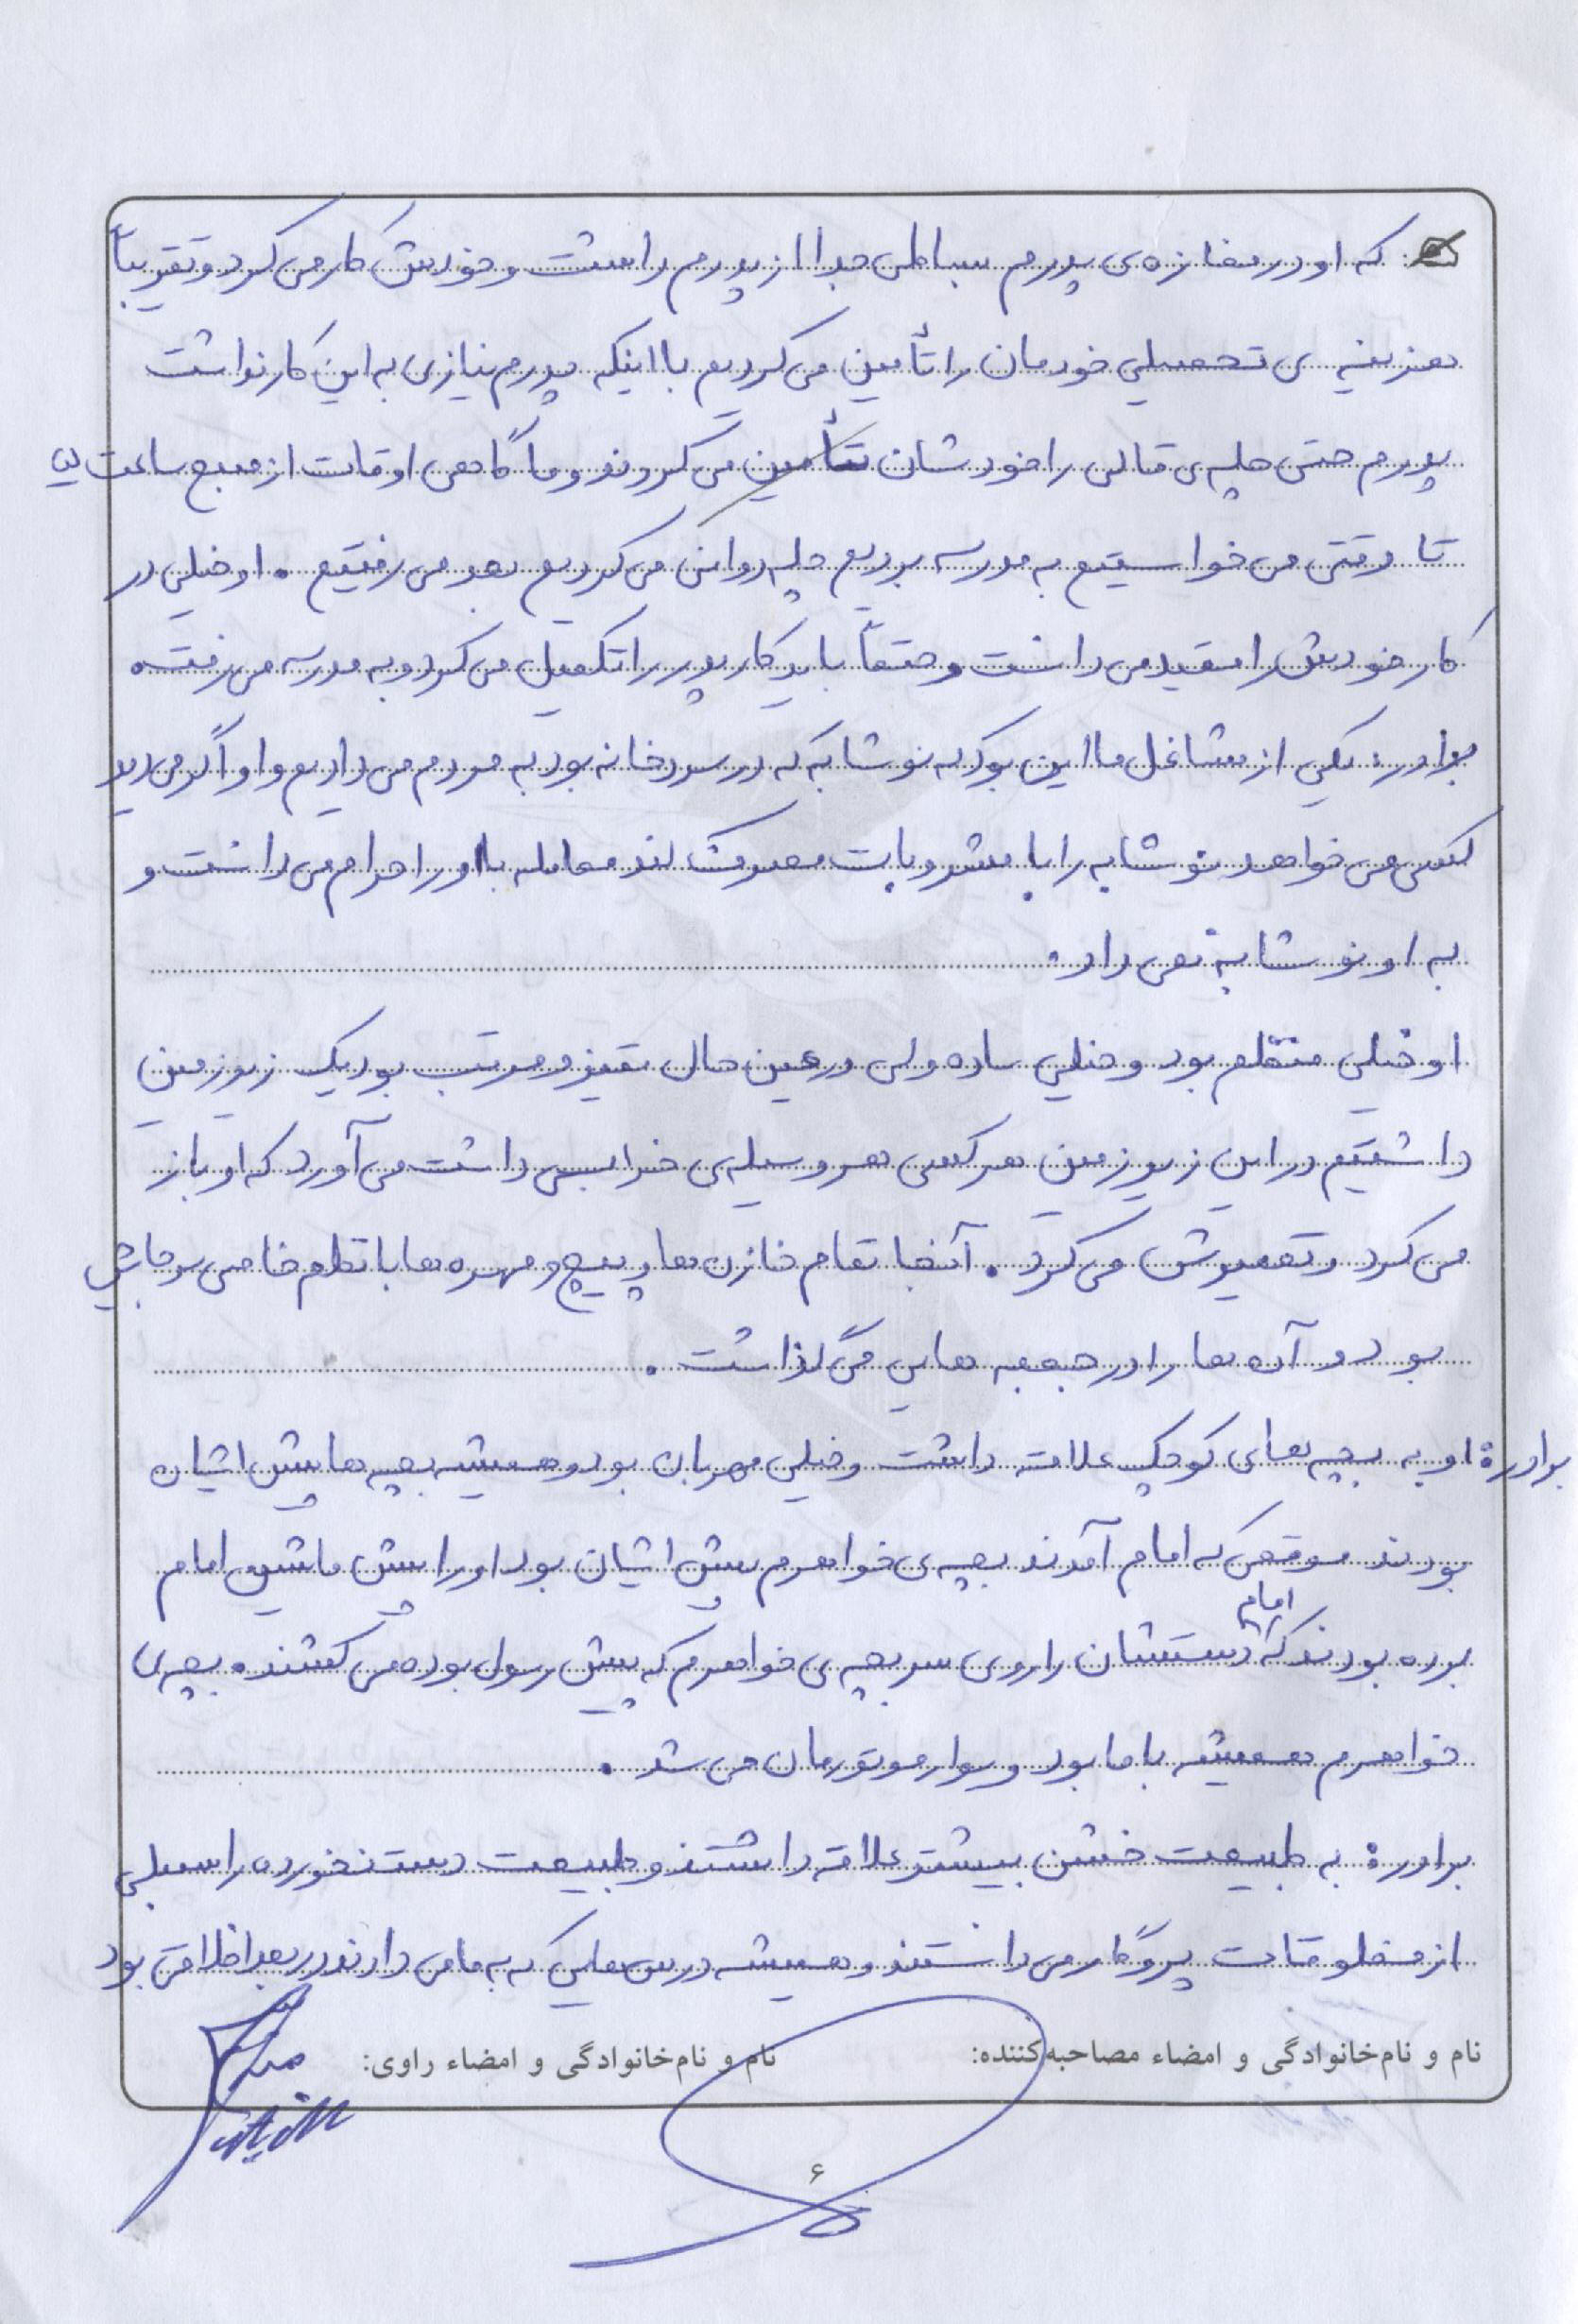 که او در مغازه‌ی پدرم بساطی جدا از پدرم داشت و خودش کار می‌کرد و تقریباً
هزینه‌ی تحصیلی خودمان را تأمین می‌کردیم با اینکه پدرم نیازی به این کار نداشت
پدرم حتی چله‌ی قالی را خودشان تأمین می‌کردند و ما گاهی اوقات از صبح ساعت
تا وقتی می‌خواستیم به مدرسه برویم چله دوانی می‌کردیم بعد می‌رفتیم. او خیلی در
کار خودش را مقید می‌دانست و حتماً باید کار پدر را تکمیل می‌کرد و به مدرسه می‌رفت.
برادر: یکی از مشاغل ما این بود که نوشابه که در سردخانه بود به مردم می‌دادیم و او اگر می‌دید
کسی می‌خواهد نوشابه را با مشروبات مصرف کند معامله با او را حرام می‌دانست و
به او نوشابه نمی‌داد.
او خیلی منظم بود و خیلی ساده ولی در عین حال تمیز و مرتب بود یک زیرزمین
داشتیم در این زیرزمین هر کسی هر وسیله‌ی خرابی داشت می‌آورد که او باز
می‌کرد و تعمیرش می‌کرد. آنجا تمام خازن‌ها و پیچ و مهره‌ها با نظم خاصی سر جایش
بود و آن‌ها را در جعبه‌هایی می‌گذاشت.
برادر: او به بچه‌های کوچک علاقه داشت و خیلی مهربان بود و همیشه بچه‌ها پیش ایشان
بودند موقعی که امام آمدند بچه‌ی خواهرم پیش ایشان بود او را پیش ماشین امام
برده بودند که امام دستشان را روی سر بچه‌ی خواهرم که پیش رسول بوده می‌کشند. بچه‌ی
خواهرم همیشه با ما بود و سوار موتورمان می‌شد.
برادر: به طبیعت خشن بیشتر علاقه داشتند و طبیعت دست نخورده را سمبلی
از مخلوقات پروردگار می‌دانستند و همیشه درس‌هایی که به ما می‌دادند در بعد اخلاقی بود
نام و نام‌خانوادگی و امضاء مصاحبه‌کننده: نام و نام‌خانوادگی و امضاء راوی:
۶